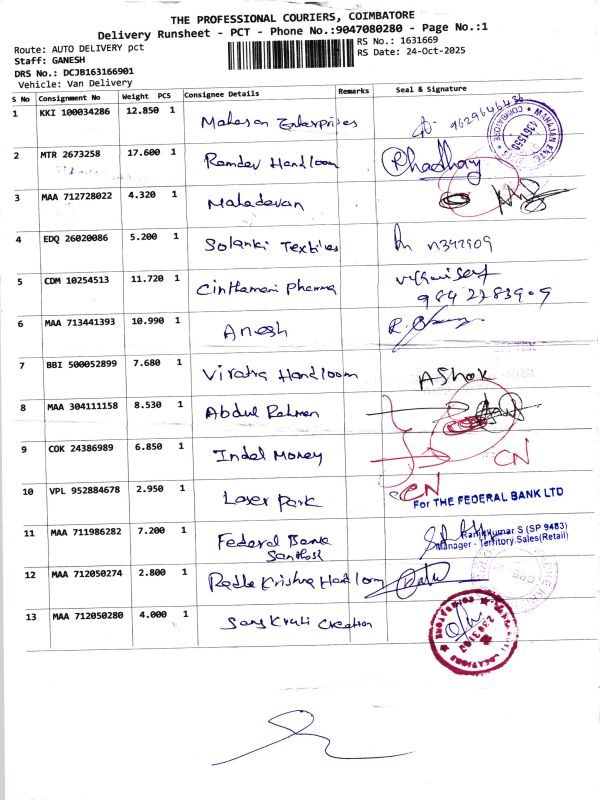 THE PROFESSIONAL COURIERS, COIMBATORE
Delivery Runsheet - PCT - Phone No.:9047080280 - Page No.:1
Route: AUTO DELIVERY pct
RS No.: 1631669
Staff: GANESH
RS Date: 24-Oct-2025
DRS No.: DCJB163166901
Vehicle: Van Delivery
S No Consignment No Weight PCS Consignee Details Remarks Seal & Signature
1 KKI 100034286 12.850 1 Mahesan Enterprises 9629646436
2 MTR 2673258 17.600 1 Ramdev Handloom
3 MAA 712728022 4.320 1 Mahadevan
4 EDQ 26020086 5.200 1 Solanki Textiles
5 CDM 10254513 11.720 1 Cinthamani Pharma
9842783909
6 MAA 713441393 10.990 1 Anesh
7 BBI 500052899 7.680 1 Viratra Handloom AShok
8 MAA 304111158 8.530 1 Abdul Rahman
9 COK 24386989 6.850 1 Indel Money CN
10 VPL 952884678 2.950 1 Laser Park CN
For THE FEDERAL BANK LTD
11 MAA 711986282 7.200 1 Federal Bank
Santhosh
Ranjithkumar S (SP 9483)
Manager - Territory Sales(Retail)
12 MAA 712050274 2.800 1 Radha Krishna Handloom
13 MAA 712050280 4.000 1 Sanskruti Creation